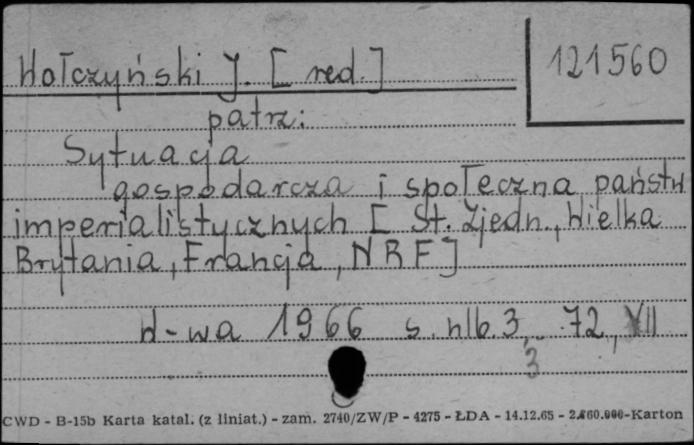 Wołczyński J. [red.]
121560
patrz:
Sytuacja
gospodarcza i społeczna państw
imperialistycznych [St. Zjedn., Wielka
Brytania, Francja, NRF]
W-wa 1966 s. nlb 3, 72, VII
3
CWD - B-15b Karta katal. (z liniat.) - zam. 2740/ZW/P - 4275 - ŁDA - 14.12.65 - 2.860.000-Karton